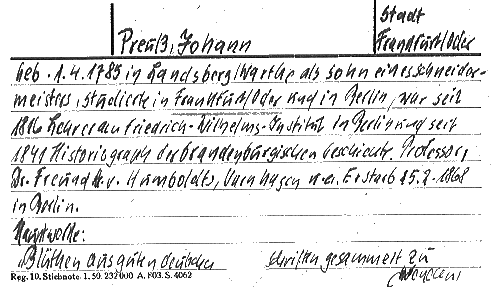 Stadt
Preuß, Johann Frankfurt/Oder
Geb. 1.4.1785 in Landsberg/Warthe als Sohn eines Schneider-
meisters, studierte in Frankfurt/Oder und in Berlin, war seit
1816 Lehrer am Friedrich-Wilhelms-Institut in Berlin und seit
1841 Historiograph der brandenburgischen Geschichte. Professor,
Dr. Freund A. v. Humboldts, Varnhagen u.a. Er starb 25.2.1868
in Berlin.
Hauptwerke:
"Blüthen aus guten deutschen Schriften gesammelt zu
Reg. 10. Stiebnote 1. 50. 232 000 A. F03. S. 4062